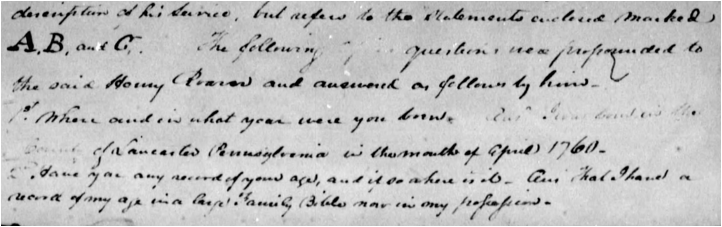 description of his service, but refers to the statements enclosed marked
A, B, and C,. The following questions were propounded to
the said Henry and answered as follows by him-
1st Where and in what year were you born. Ans. I was born in the
County of Lancaster Pennsylvania in the month of April 1760.
2d Have you any record of your age, and if so where is it- Ans That I have a
record of my age in a large Family Bible now in my possession-